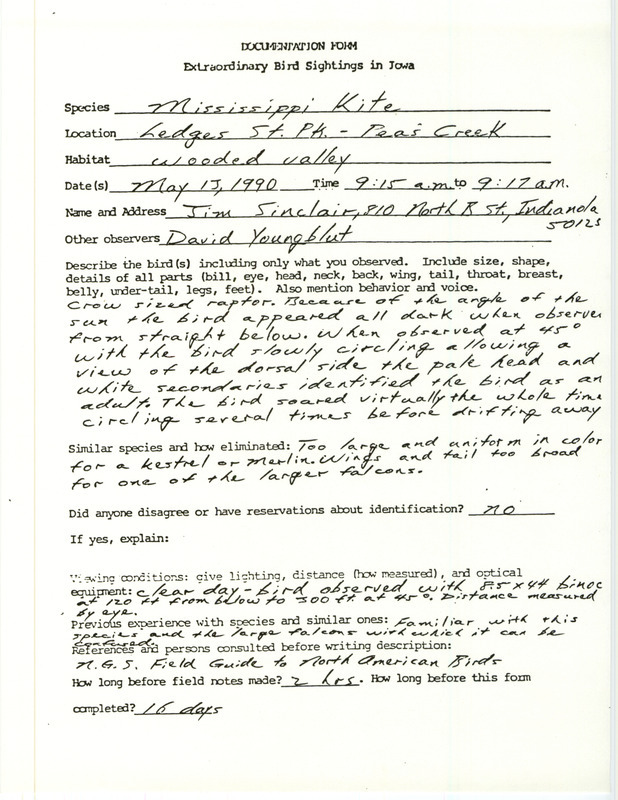 DOCUMENTATION FORM
Extraordinary Bird Sightings in Iowa
Species Mississippi Kite
Location Ledges St. Pk. - Peas Creek
Habitat wooded valley
Date(s) May 13, 1990 Time 9:15 a.m. to 9:17 a.m.
Name and Address Jim Sinclair, 810 North R St, Indianola
50125
Other observers David Youngblut
Describe the bird(s) including only what you observed. Include size, shape,
details of all parts (bill, eye, head, neck, back, wing, tail, throat, breast,
belly, under-tail, legs, feet). Also mention behavior and voice.
Crow sized raptor. Because of the angle of the
sun the bird appeared all dark when observe
from straight below. When observed at 45°
with the bird slowly circling allowing a
view of the dorsal side the pale head and
white secondaries identified the bird as an
adult. The bird soared virtually the whole time
circling several times before drifting away
Similar species and how eliminated: Too large and uniform in color
for a kestrel or Merlin. Wings and tail too broad
for one of the larger falcons.
Did anyone disagree or have reservations about identification? no
If yes, explain:
Viewing conditions: give lighting, distance (how measured), and optical
equipment: clear day - bird observed with 8.5 x 44 binoc
at 120 ft from below to 300 ft. at 45°. Distance measured
by eye.
Previous experience with species and similar ones: Familiar with this
species and the large falcons with which it can be
confused.
References and persons consulted before writing description:
N.G.S. Field Guide to North American Birds
How long before field notes made? 2 hrs. How long before this form
completed? 16 days